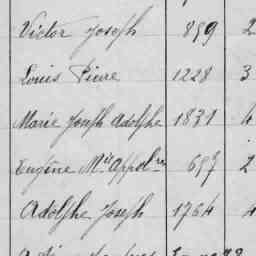 Victor Joseph 859 2
Louis Pierre 1228 3
Marie Joseph Adolphe 1831 4
Eugène 2
Adolphe Joseph 1764 4